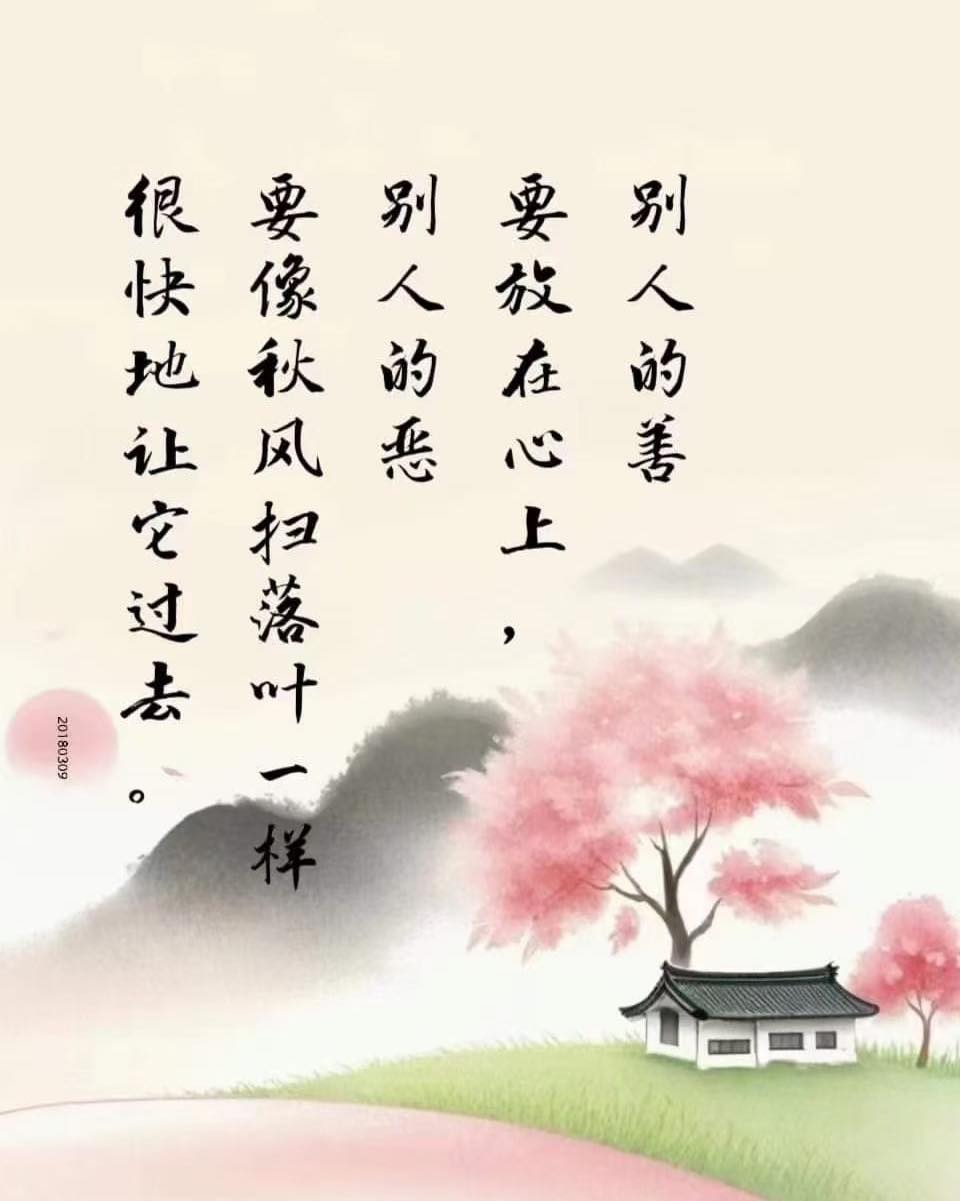 别人的善
要放在心上，
别人的恶
要像秋风扫落叶一样
很快地让它过去。
20180309